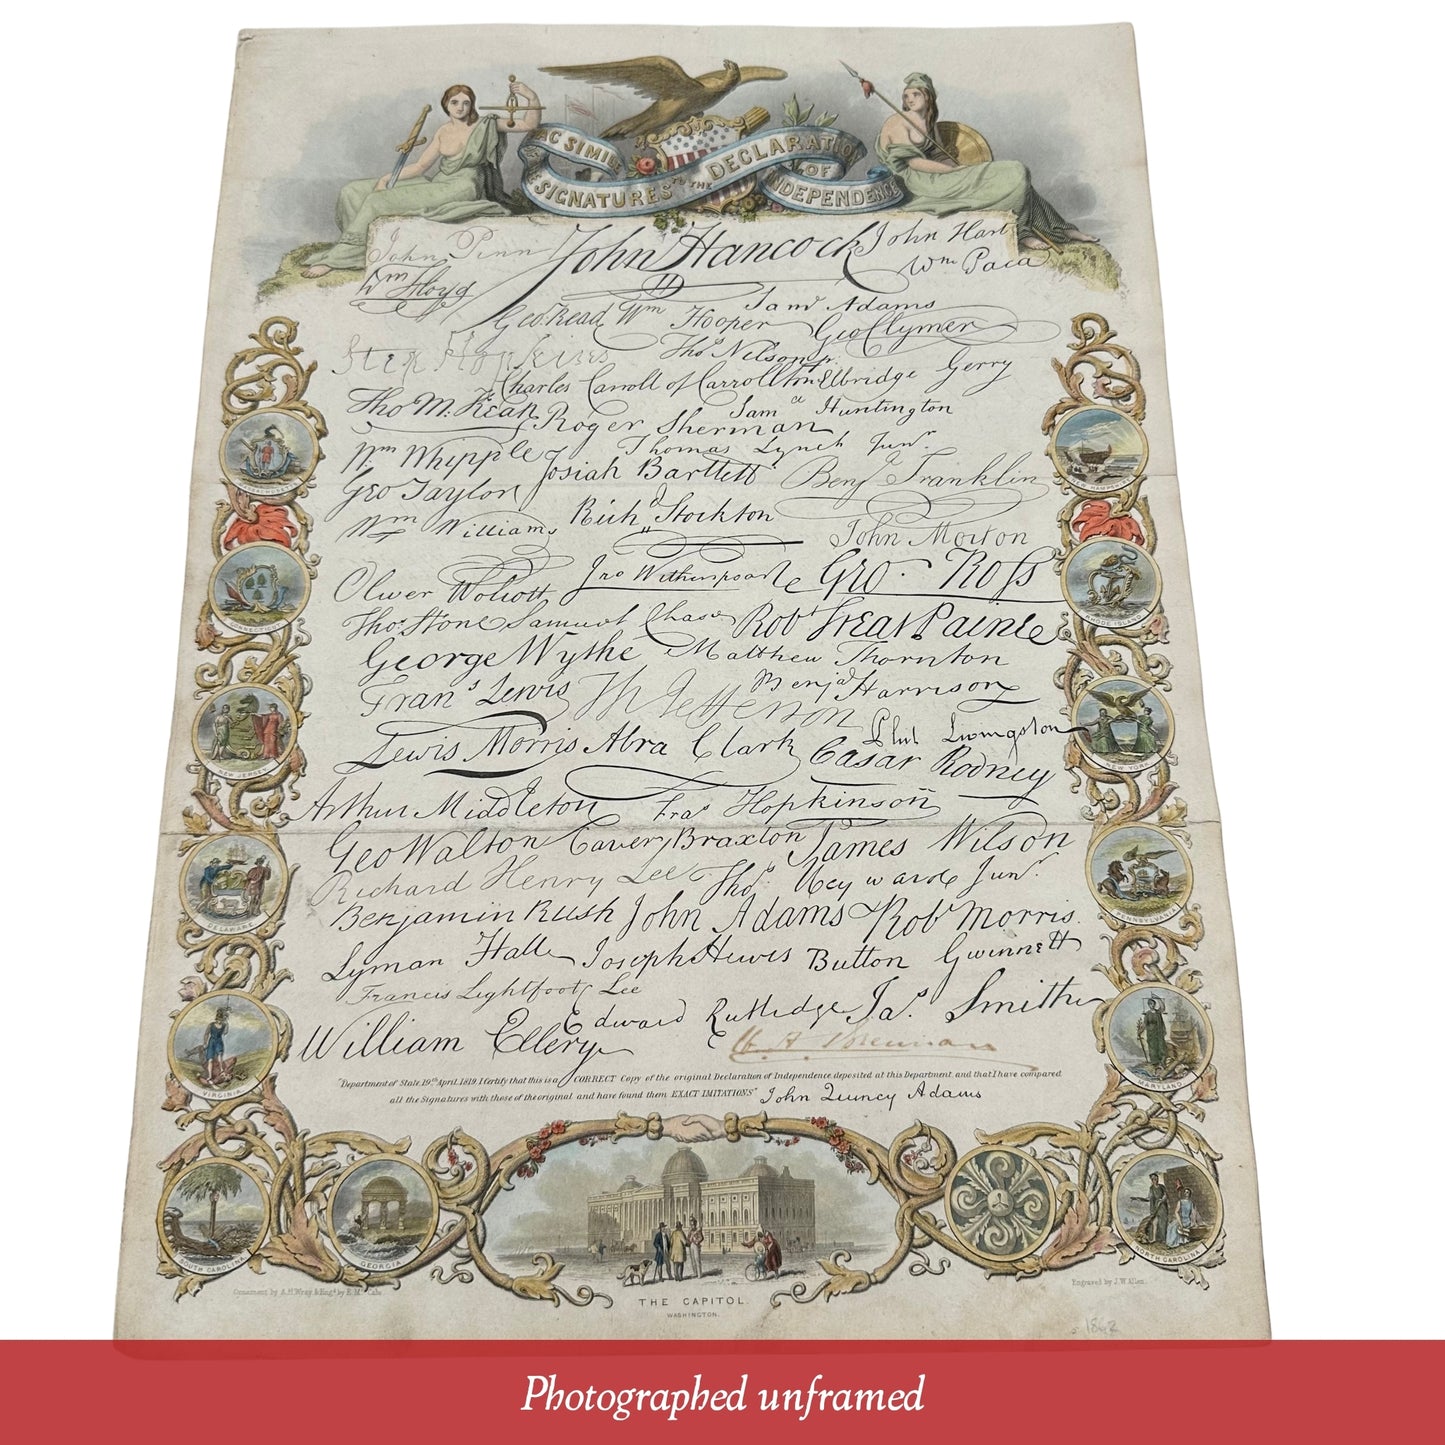 FAC SIMILE
OF THE SIGNATURES TO THE DECLARATION OF INDEPENDENCE
John Penn John Hancock John Hart
Wm Floyd Wm Paca
Geo. Read Wm Hooper Sam Adams Geo Clymer
Step Hopkins Thos Nelson jr.
Charles Carroll of Carrollton Elbridge Gerry
Tho M. Kean Roger Sherman Saml Huntington
Wm Whipple Josiah Bartlett Thomas Lynch Junr
Geo Taylor Benj Franklin
Wm Williams Richd Stockton John Morton
Oliver Wolcott Jno Witherspoon Geo. Ross
Thos Stone Samuel Chase Robt Treat Paine
George Wythe Matthew Thornton
Frans Lewis Th Jefferson Benj Harrison
Lewis Morris Abra Clark Phil Livingston
Cæsar Rodney
Arthur Middleton Fras Hopkinson
Geo Walton Carter Braxton James Wilson
Richard Henry Lee Thos Heyward Junr.
Benjamin Rush John Adams Robt Morris.
Lyman Hall Joseph Hewes Button Gwinnett
Francis Lightfoot Lee
William Ellery Edward Rutledge Jas. Smith
"Department of State, 19th April, 1819. I Certify that this is a CORRECT Copy of the original Declaration of Independence deposited at this Department, and that I have compared
all the Signatures with those of the original and have found them EXACT IMITATIONS" John Quincy Adams
MASSACHUSETTS
NEW HAMPSHIRE
CONNECTICUT
RHODE ISLAND
NEW JERSEY
NEW YORK
DELAWARE
PENNSYLVANIA
VIRGINIA
MARYLAND
SOUTH CAROLINA
GEORGIA
NORTH CAROLINA
Ornament by A.H. Wray & Engd by E. Mc Cabe
Engraved by J.W. Allen.
THE CAPITOL.
WASHINGTON.
Photographed unframed